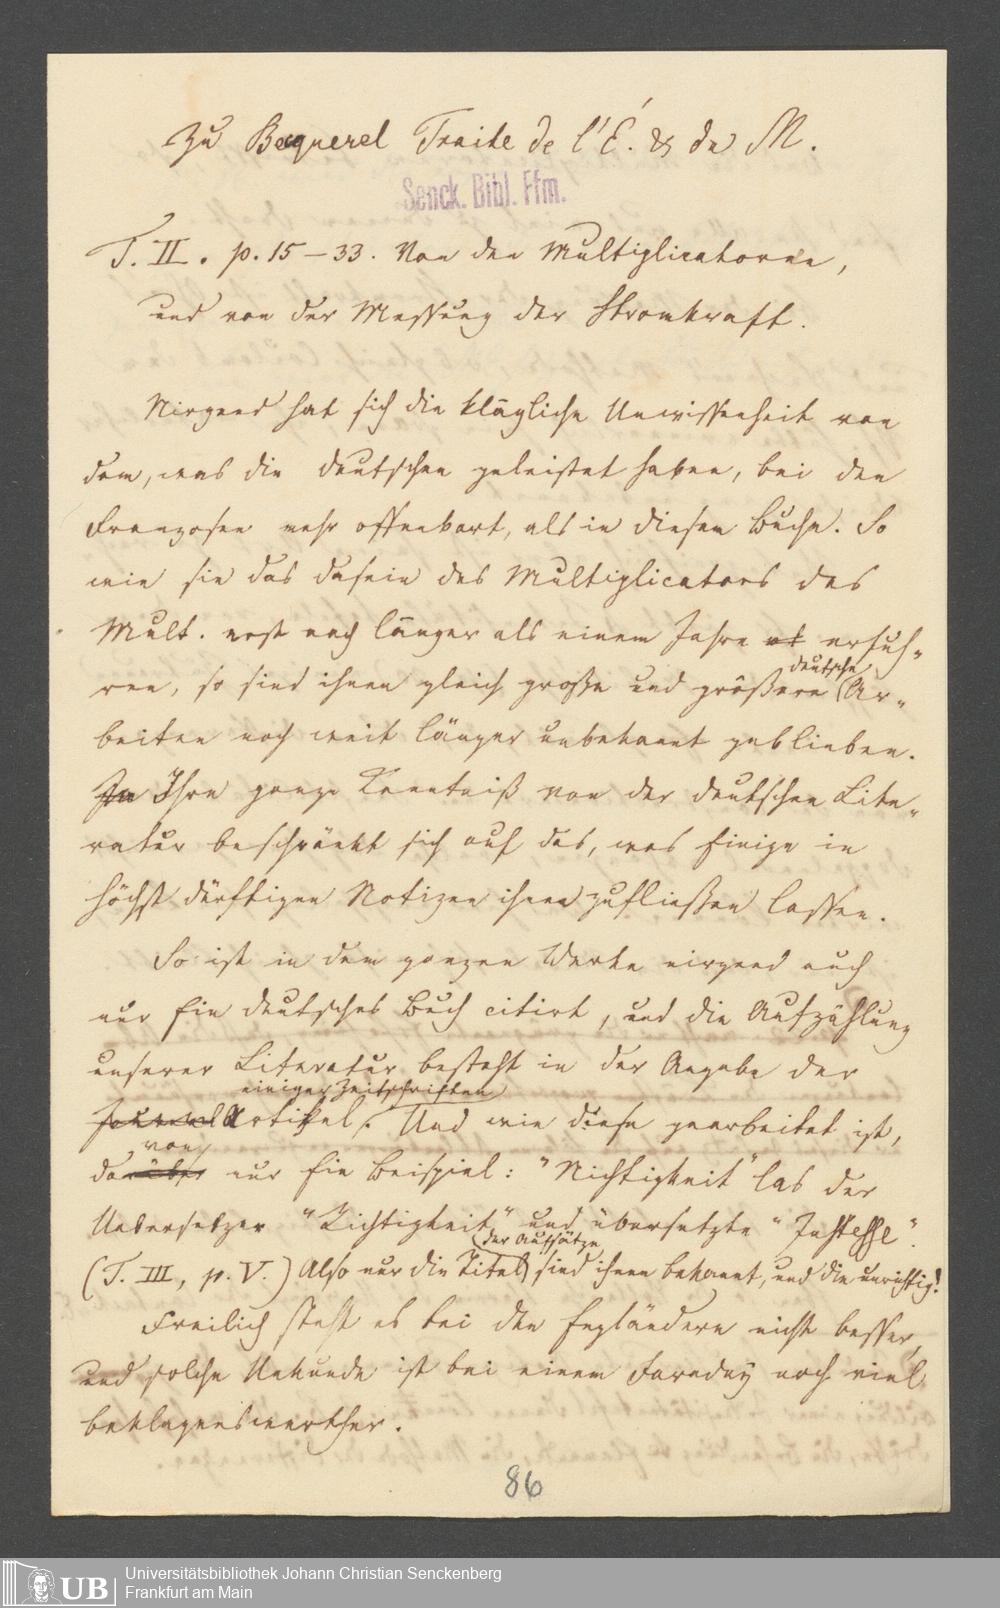 Zu Becquerel Traite de l'É. & du M.
Senck. Bibl. Ffm.
T. II. p. 15–33. Von den Multiplicatoren,
und von der Messung der Stromkraft.
Nirgend hat sich die klägliche Unwissenheit von
dem, was die Deutschen geleistet haben, bei den
Franzosen mehr offenbart, als in diesem Buche. So
wie sie das Dasein des Multiplicators des
Mult. erst nach länger als einem Jahre erfuh-
ren, so sind ihnen gleich große und größere deutsche Ar-
beiten noch weit länger unbekannt geblieben.
Ihre ganze Kenntniß von der deutschen Lite-
ratur beschränkt sich auf das, was Einige in
höchst dürftigen Notizen ihnen zufließen lassen.
So ist in dem ganzen Werke nirgend auch
nur Ein deutsches Buch citirt, und die Aufzählung
unserer Literatur besteht in der Angabe der
Journal Artikel einiger Zeitschriften. Und wie diese gearbeitet ist,
davon nur Ein Beispiel: "Nichtigkeit" las der
Uebersetzer "Richtigkeit" und übersetzte "Justesse".
(T. III, p. V.) Also nur die Titel der Aufsätze sind ihnen bekannt, und die unrichtig!
Freilich steht es bei den Engländern nicht besser,
und solche Unkunde ist bei einem Faraday noch viel
beklagenswerther.
86
UB
Universitätsbibliothek Johann Christian Senckenberg
Frankfurt am Main